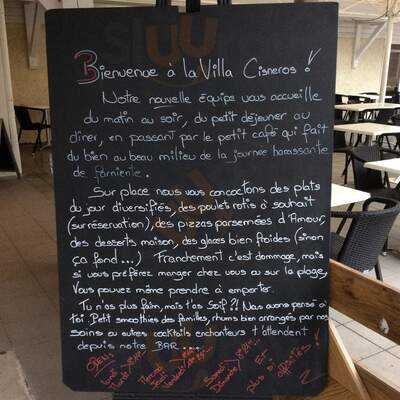 Bienvenue à la Villa Cisneros !
Notre nouvelle équipe vous accueille
du matin au soir, du petit déjeuner au
dîner, en passant par le petit café qui fait
du bien au beau milieu de la journée harassante
de farniente.
Sur place nous vous concoctons des plats
du jour diversifiés, des poulets rotis à souhait
(sur réservation), des pizzas parsemées d'Amour,
des desserts maison, des glaces bien froides (sinon
ça fond...) Franchement c'est dommage, mais
si vous préférez manger chez vous ou sur la plage,
Vous pouvez même prendre à emporter.
Tu n'as plus faim, mais t'as soif ?! Nous avons pensé à
toi. Petit smoothies des familles, rhums bien arrangés par nos
soins ou autres cocktails enchanteurs t'attendent
depuis notre BAR ...